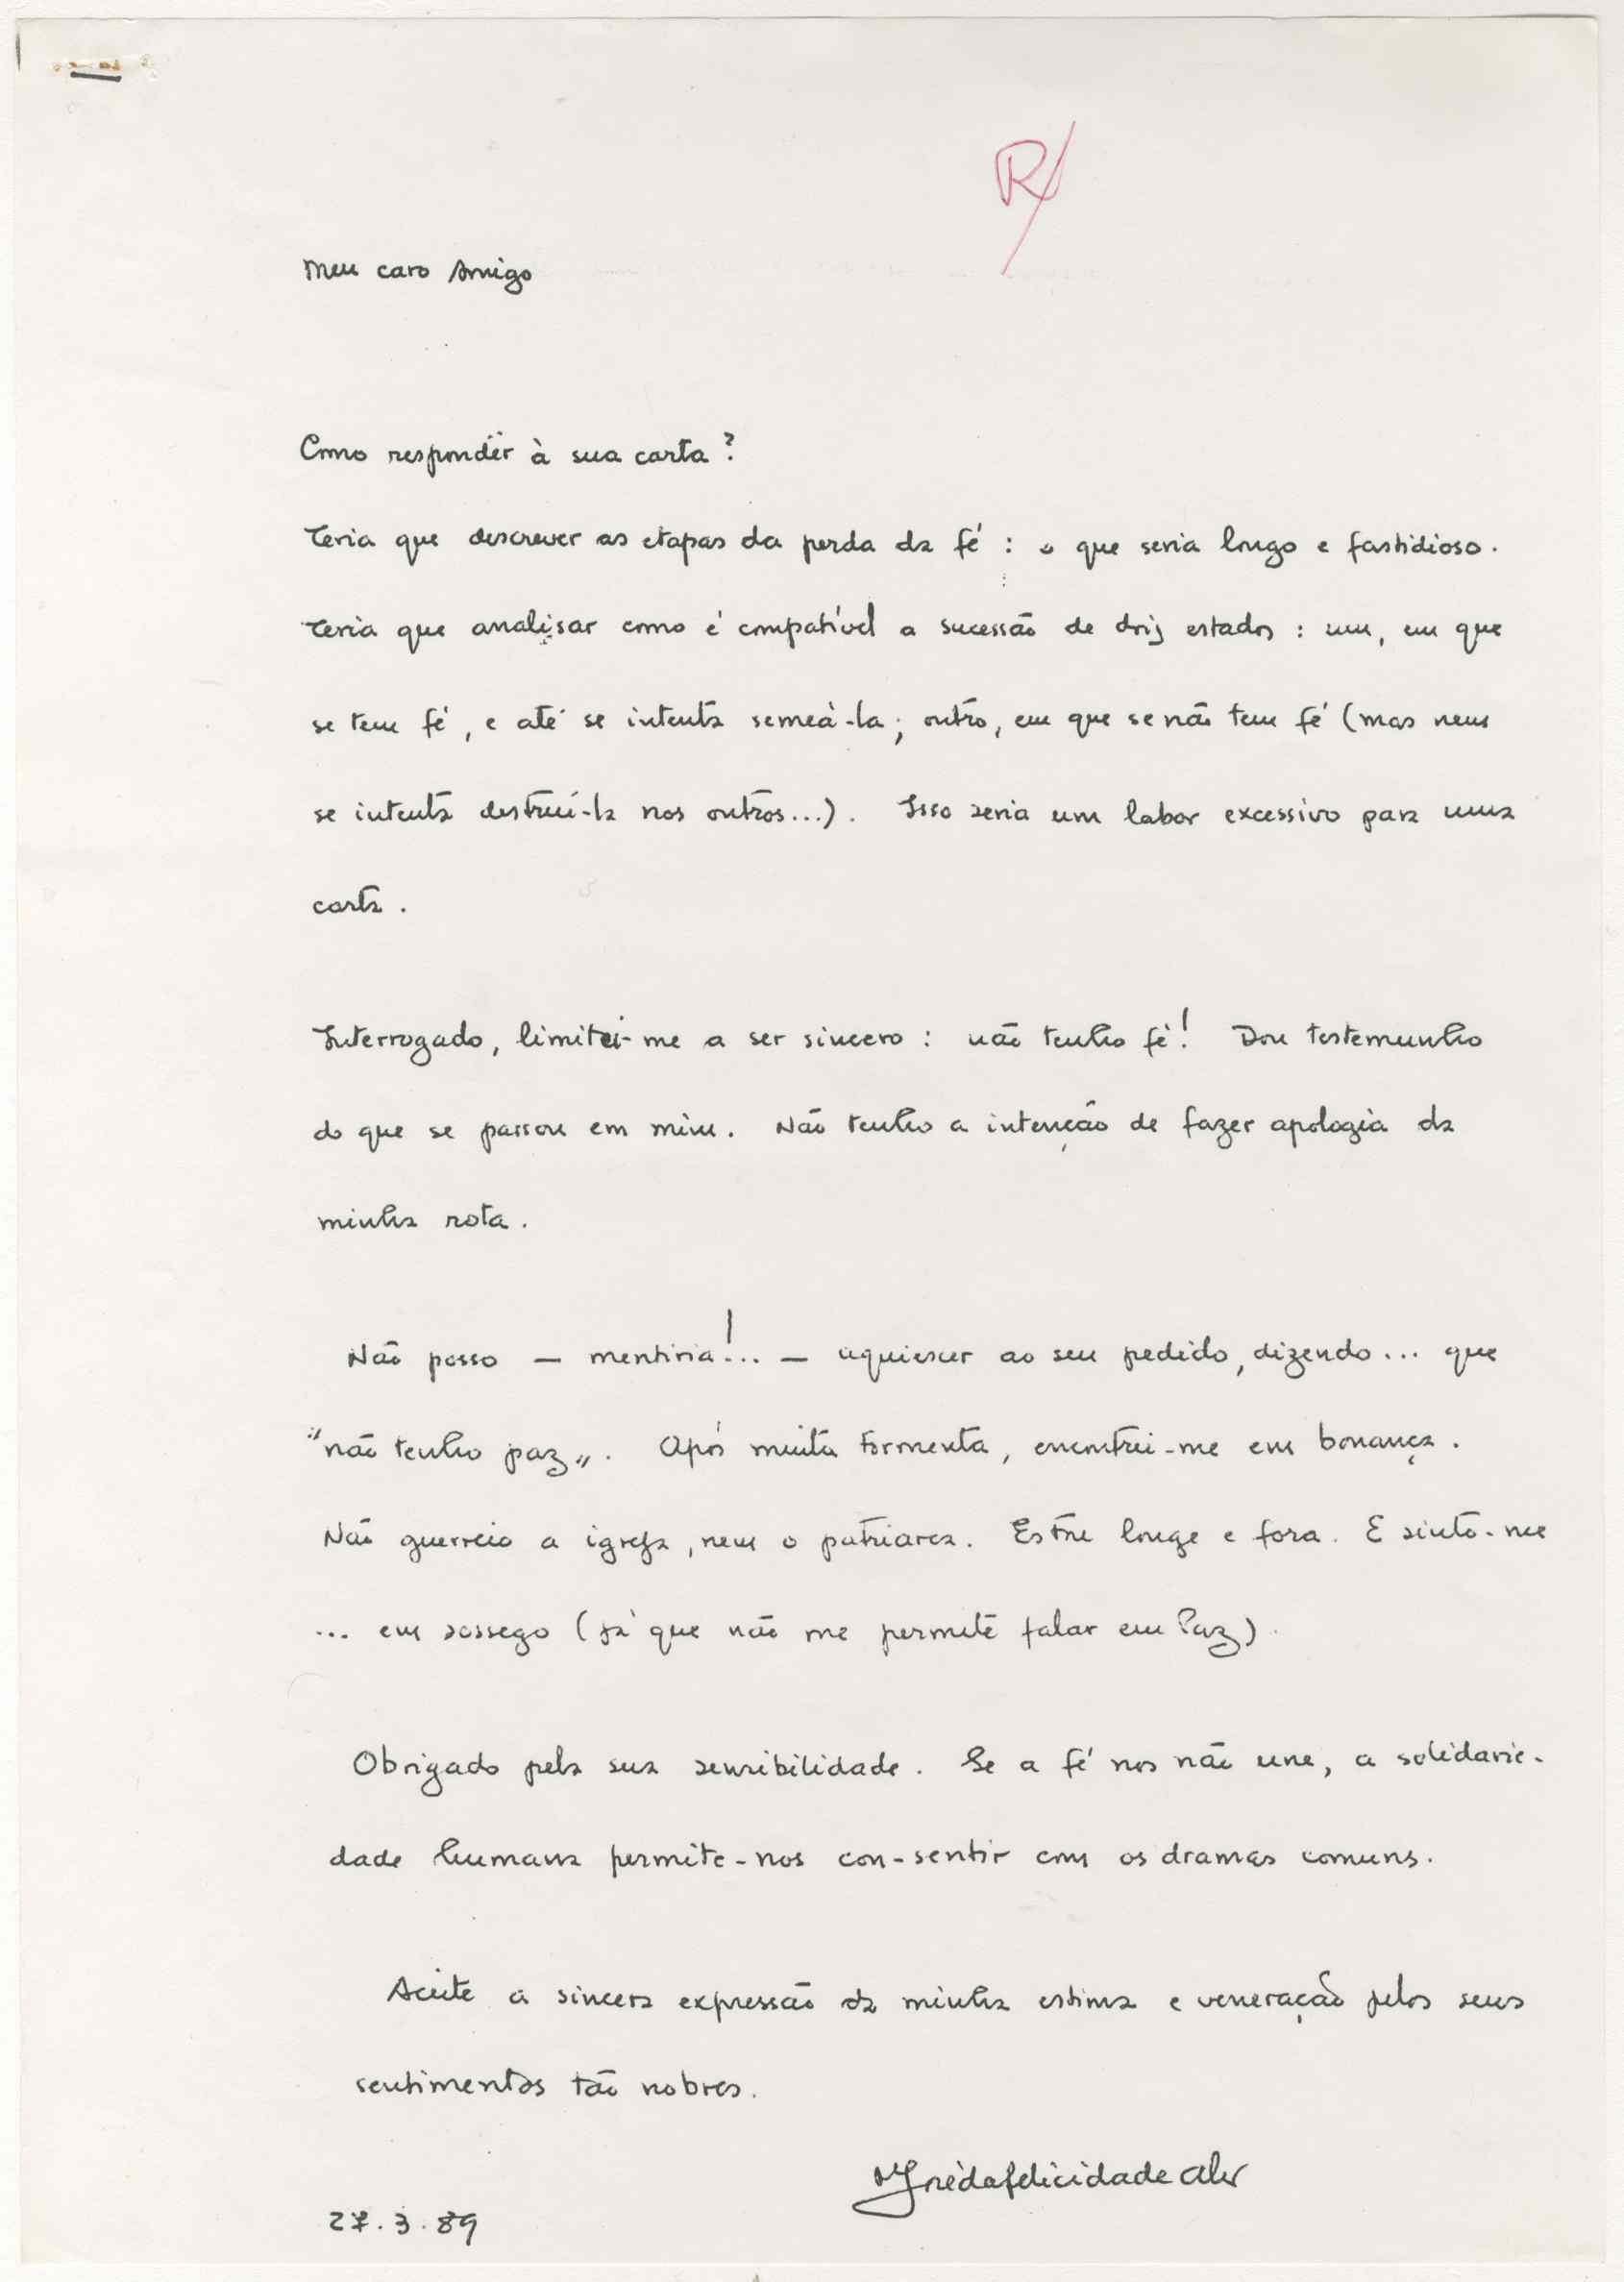 R/
Meu caro Amigo
Como responder à sua carta?
Teria que descrever as etapas da perda da fé: o que seria longo e fastidioso.
Teria que analisar como é compatível a sucessão de dois estados: um, em que
se tem fé, e até se intenta semeá-la; outro, em que se não tem fé (mas nem
se intenta destruí-la nos outros...). Isso seria um labor excessivo para uma
carta.
Interrogado, limitei-me a ser sincero: não tenho fé! Dou testemunho
do que se passou em mim. Não tenho a intenção de fazer apologia da
minha rota.
Não posso — mentiria!... — aquiescer ao seu pedido, dizendo... que
"não tenho paz". Após muita tormenta, encontrei-me em bonança.
Não guerreio a igreja, nem o patriarca. Estou longe e fora. E sinto-me
... em sossego (já que não me permite falar em Paz).
Obrigado pela sua sensibilidade. Se a fé nos não une, a solidarie-
dade humana permite-nos con-sentir com os dramas comuns.
Aceite a sincera expressão da minha estima e veneração pelos seus
sentimentos tão nobres.
felicidade alv
27.3.89